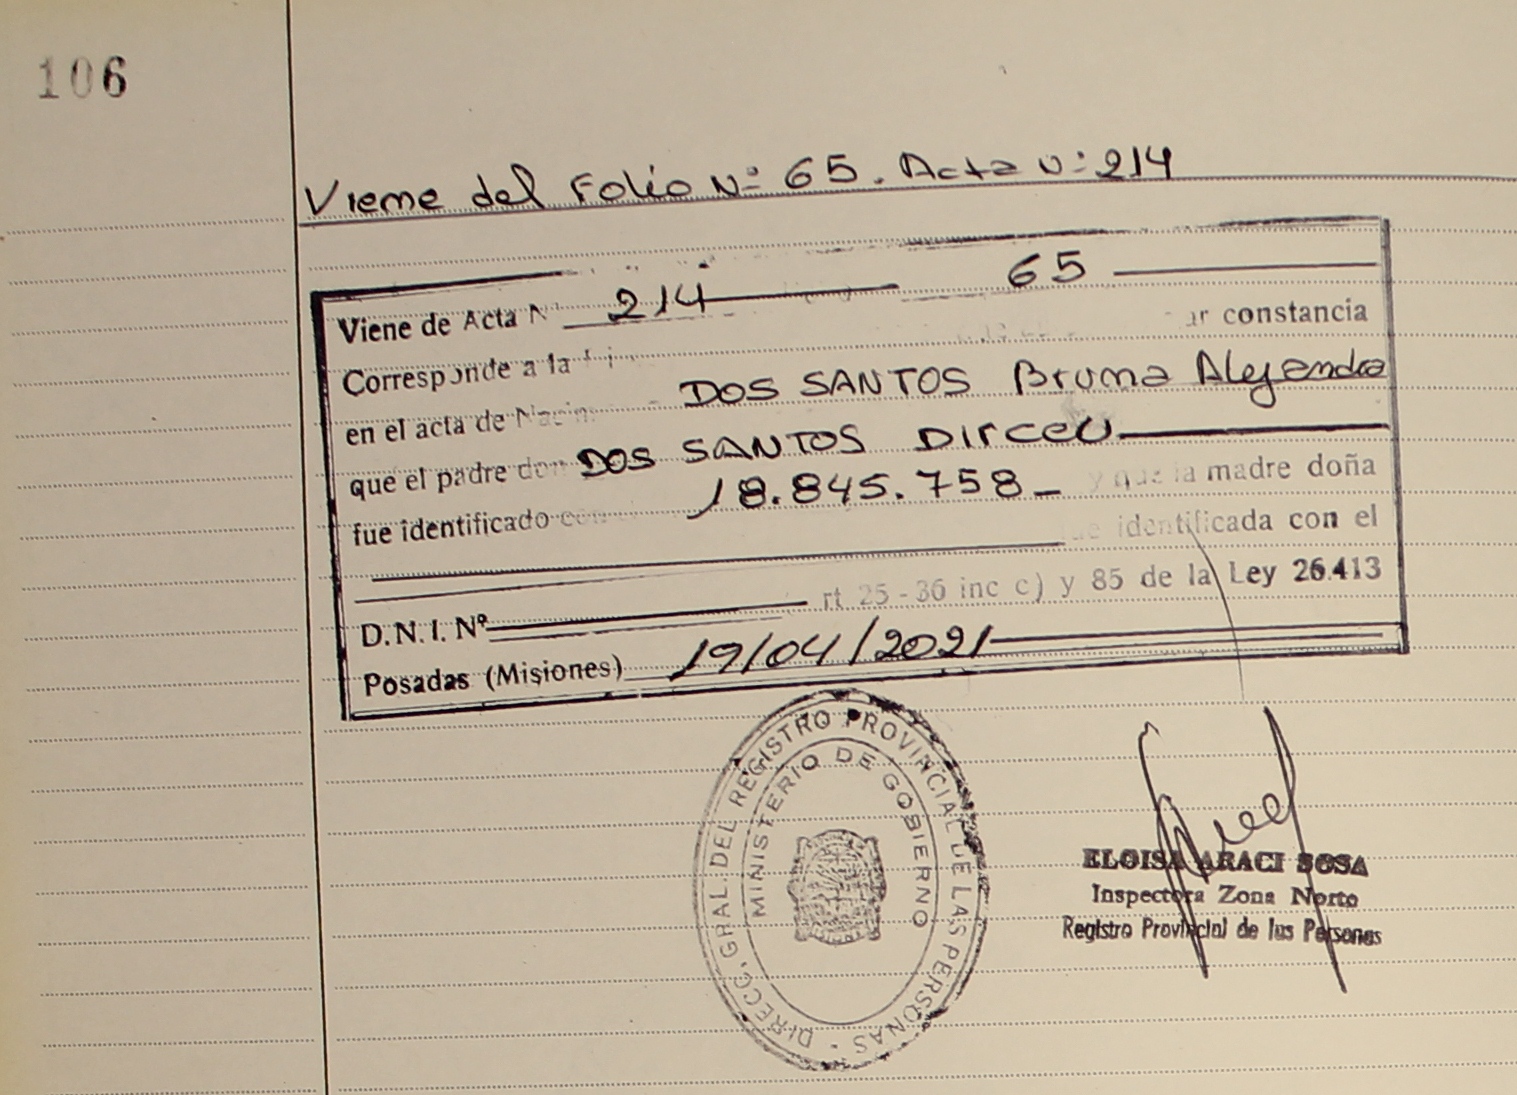 106
Viene del Folio Nº 65. Acta Nº 214
Viene de Acta N 214 65
Corresponde a la constancia
en el acta de DOS SANTOS Bruna Alejandra
que el padre don DOS SANTOS Dirceu
fue identificado con 18.845.758 y que la madre doña
identificada con el
D.N.I. Nº rt 25 - 36 inc c) y 85 de la Ley 26.413
Posadas (Misiones) 19/04/2021
DIRECC. GRAL. DEL REGISTRO PROVINCIAL DE LAS PERSONAS
MINISTERIO DE GOBIERNO
ELOISA ARACI SOSA
Inspectora Zona Norte
Registro Provincial de las Personas